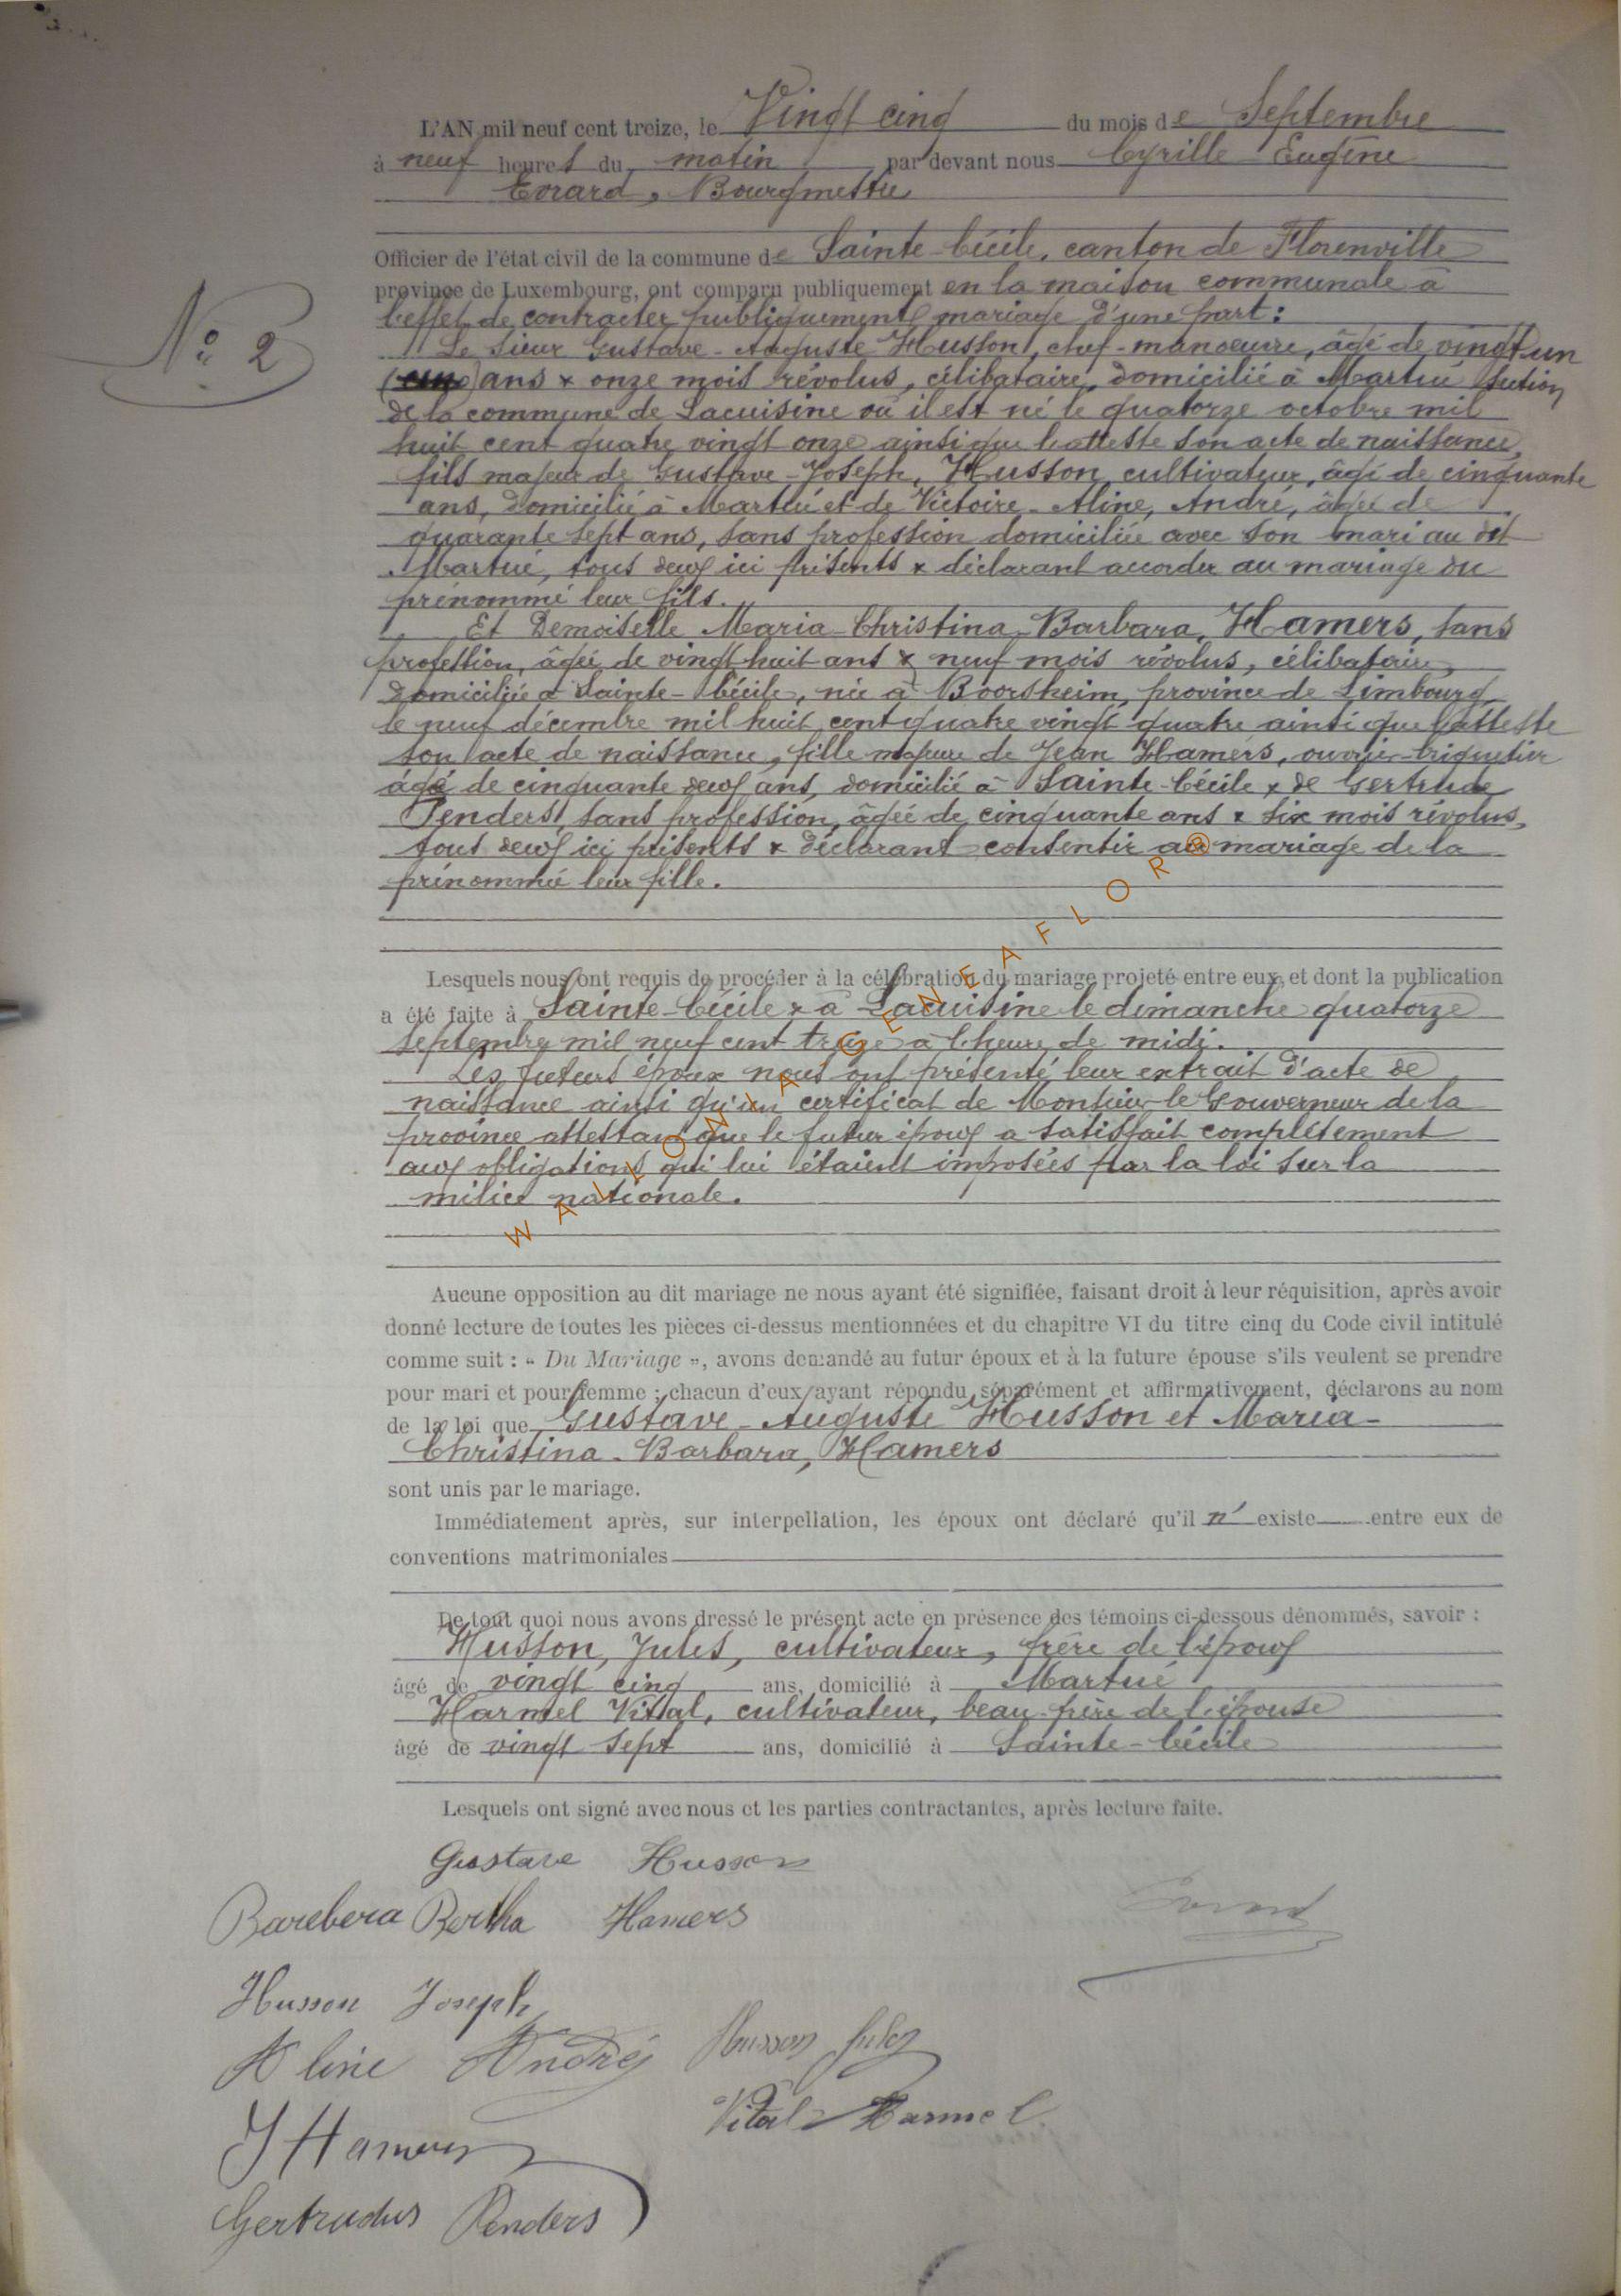 L'AN mil neuf cent treize, le Vingt cinq du mois de Septembre
à neuf heures du matin par devant nous Cyrille Eugène
Evrard, Bourgmestre
Officier de l'état civil de la commune de Sainte-Cécile, canton de Florenville
province de Luxembourg, ont comparu publiquement en la maison communale à
l'effet de contracter publiquement mariage d'une part:
N° 2
Le sieur Gustave-Auguste Husson, chef-manoeuvre, âgé de vingt un
ans & onze mois révolus, célibataire, domicilié à Martué section
de la commune de Lacuisine où il est né le quatorze octobre mil
huit cent quatre vingt onze ainsi que l'atteste son acte de naissance,
fils majeur de Gustave-Joseph, Husson, cultivateur, âgé de cinquante
ans, domicilié à Martué et de Victoire-Aline, André, âgée de
quarante sept ans, sans profession domiciliée avec son mari au dit
Martué, tous deux ici présents & déclarant accorder au mariage du
prénommé leur fils.
Et Demoiselle Maria-Christina-Barbara, Hamers, sans
profession, âgée de vingt huit ans & neuf mois révolus, célibataire,
domiciliée à Sainte-Cécile, née à Boorsheim, province de Limbourg,
le neuf décembre mil huit cent quatre vingt quatre ainsi que l'atteste
son acte de naissance, fille majeure de Jean Hamers, ouvrier briquetier
âgé de cinquante deux ans, domicilié à Sainte-Cécile & de Gertrude
Penders, sans profession, âgée de cinquante ans & six mois révolus,
tous deux ici présents & déclarant consentir au mariage de la
prénommée leur fille.
Lesquels nous ont requis de procéder à la célébration du mariage projeté entre eux, et dont la publication
a été faite à Sainte-Cécile & à Lacuisine le dimanche quatorze
septembre mil neuf cent treize à l'heure de midi.
Les futurs époux nous ont présenté leur extrait d'acte de
naissance ainsi qu'un certificat de Monsieur le Gouverneur de la
province attestant que le futur époux a satisfait complètement
aux obligations qui lui étaient imposées par la loi sur la
milice nationale.
WALLONIA GENEAFLOR ®
Aucune opposition au dit mariage ne nous ayant été signifiée, faisant droit à leur réquisition, après avoir
donné lecture de toutes les pièces ci-dessus mentionnées et du chapitre VI du titre cinq du Code civil intitulé
comme suit : « Du Mariage », avons demandé au futur époux et à la future épouse s'ils veulent se prendre
pour mari et pour femme ; chacun d'eux ayant répondu séparément et affirmativement, déclarons au nom
de la loi que Gustave-Auguste Husson et Maria-
Christina-Barbara, Hamers
sont unis par le mariage.
Immédiatement après, sur interpellation, les époux ont déclaré qu'il n' existe entre eux de
conventions matrimoniales
De tout quoi nous avons dressé le présent acte en présence des témoins ci-dessous dénommés, savoir :
Husson, Jules, cultivateur, frère de l'époux
âgé de vingt cinq ans, domicilié à Martué
Harmel Vital, cultivateur, beau-frère de l'épouse
âgé de vingt sept ans, domicilié à Sainte-Cécile
Lesquels ont signé avec nous et les parties contractantes, après lecture faite.
Gustave Husson
Barebera Bertha Hamers
Evrard
Husson Joseph
Aline André
Husson Jules
Vital Harmel
J Hamers
Gertrudus Penders